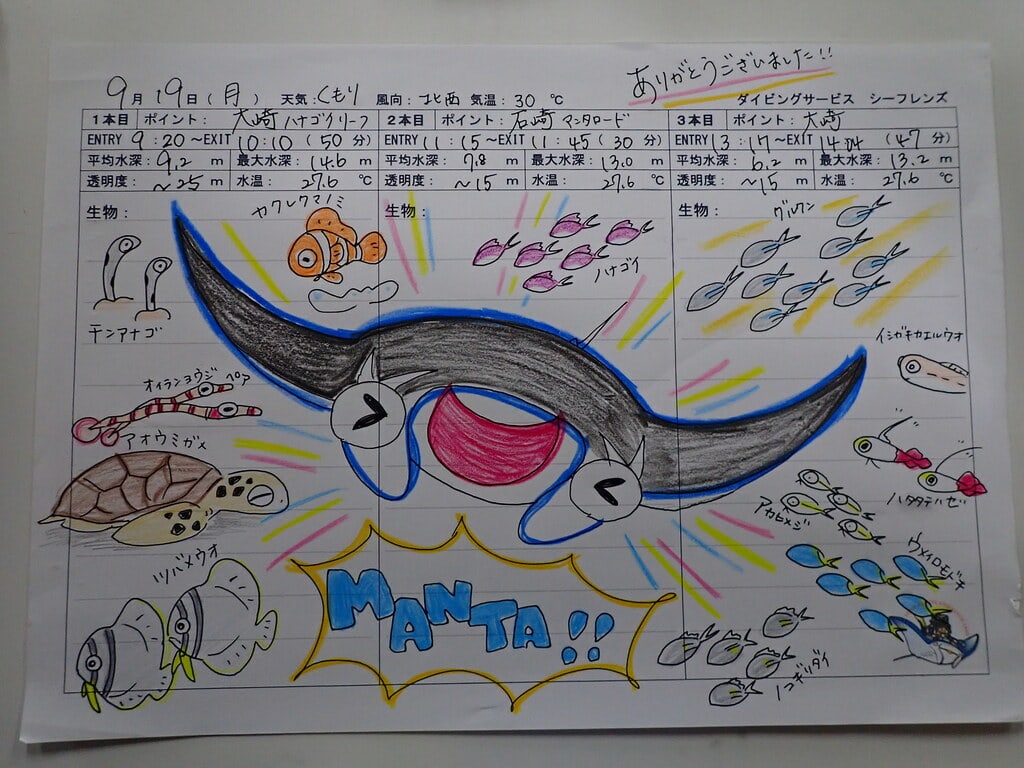 ありがとうございました!!
9月19日(月) 天気:くもり 風向:北西 気温:30℃ ダイビングサービス シーフレンズ
1本目 ポイント: 大崎 ハナゴイリーフ
ENTRY 9:20〜EXIT 10:10 (50分)
平均水深: 9.2 m 最大水深: 14.6 m
透明度: ~25 m 水温: 27.6 ℃
2本目 ポイント: 石崎 マンタロード
ENTRY 11:15〜EXIT 11:45 (30分)
平均水深: 7.8 m 最大水深: 13.0 m
透明度: ~15 m 水温: 27.6 ℃
3本目 ポイント: 大崎
ENTRY 13:17〜EXIT 14:04 (47分)
平均水深: 6.2 m 最大水深: 13.2 m
透明度: ~15 m 水温: 27.6 ℃
生物:
カクレクマノミ
チンアナゴ
オイランヨウジ ペア
アオウミガメ
ツバメウオ
生物:
ハナゴイ
MANTA!!
生物:
グルクン
イシガキカエルウオ
ハタタテハゼ
アカヒメジ
ウメイロモドキ
ノコギリダイ